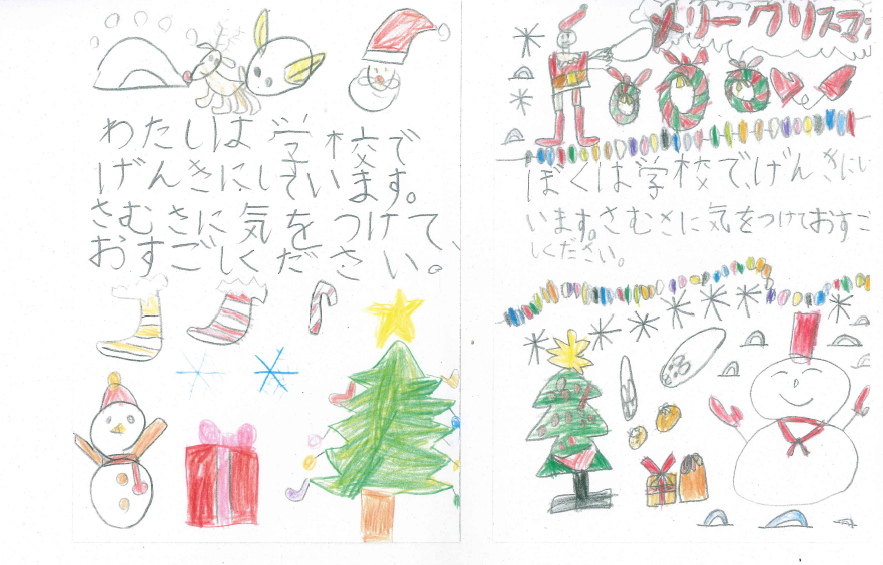 わたしは学校で
げんきにしています。
さむさに気をつけて、
おすごしください。
メリークリスマ
ぼくは学校で、げんきにし
います。さむさに気をつけておすご
しください。